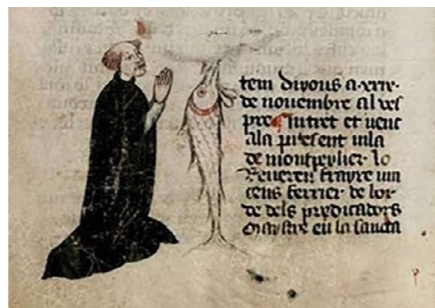 tem diuous a
de nouembre al ves
pre intret et uenc
ala present uila
de montpeylier lo
Reueren frayre uin
cens ferrier de lor
de dels predicadors
maystre en la sancta